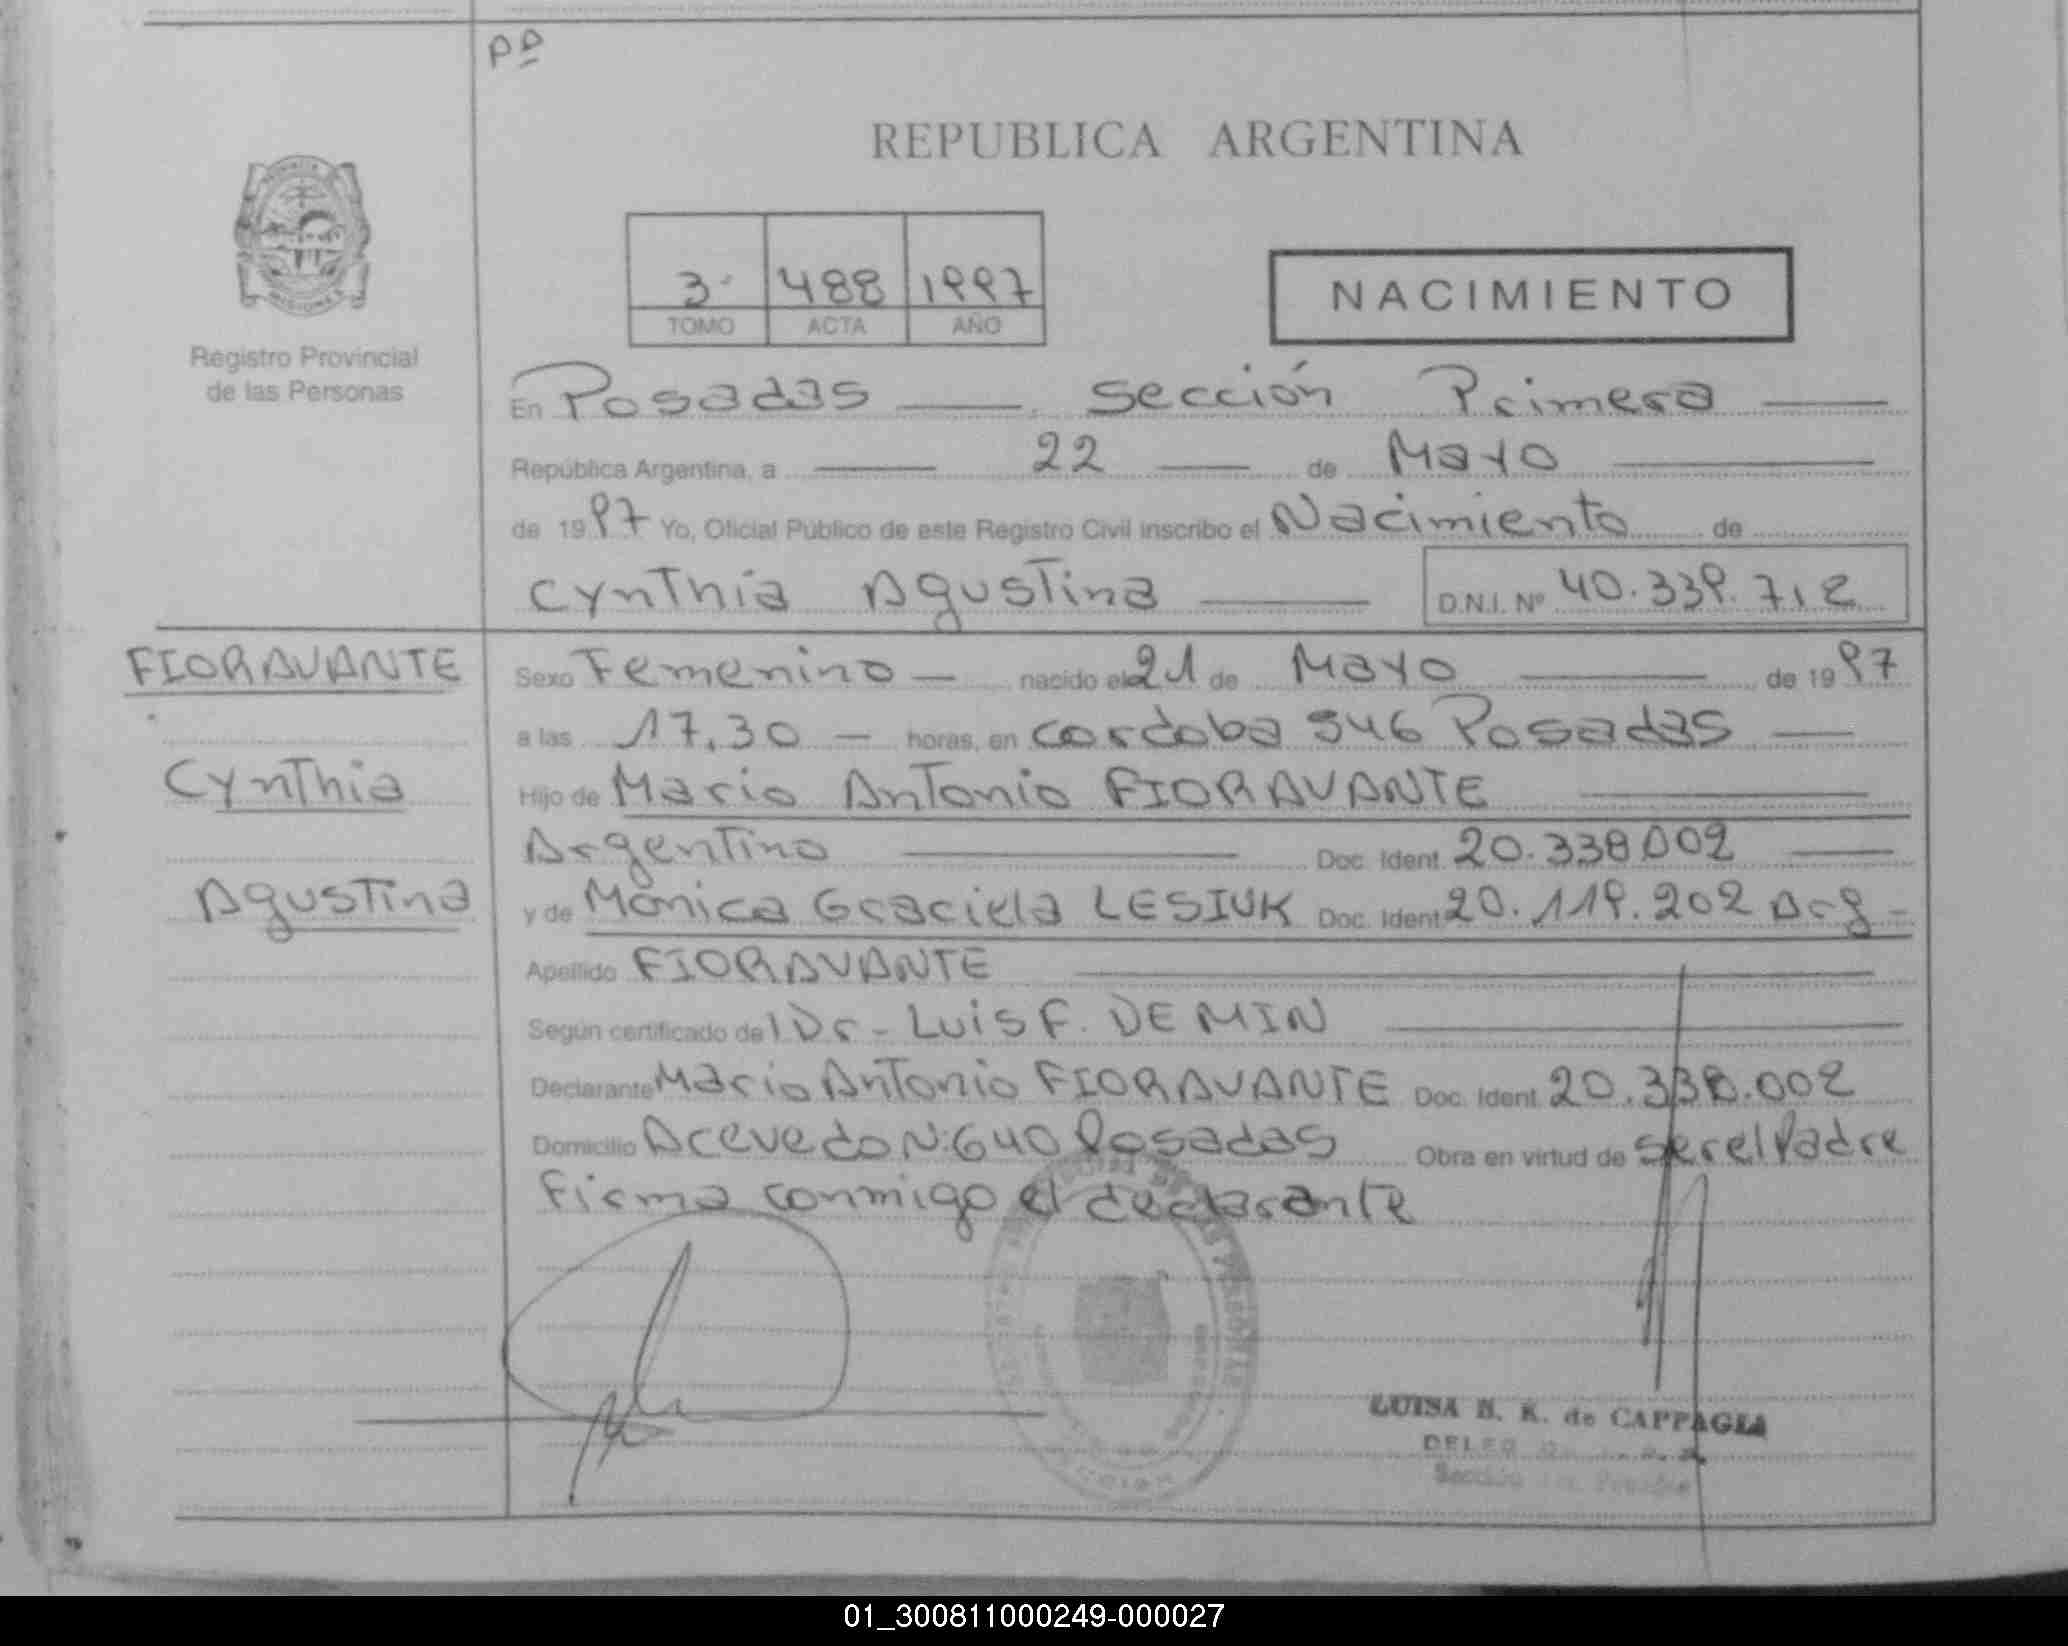 Pº
REPUBLICA ARGENTINA
3 488 1997
TOMO ACTA AÑO
NACIMIENTO
Registro Provincial
de las Personas
En Posadas sección Primera
República Argentina, a 22 de Mayo
de 1997 Yo, Oficial Público de este Registro Civil inscribo el Nacimiento de
Cynthia Agustina D.N.I. Nº 40.339.712
FIORAVANTE
Cynthia
Agustina
Sexo Femenino nacido el 21 de Mayo de 1997
a las 17,30 horas, en cordoba 946 Posadas
Hijo de Mario Antonio FIORAVANTE
Argentino Doc. Ident. 20.338.002
y de Mónica Graciela LESIUK Doc. Ident. 20.119.202 Arg
Apellido FIORAVANTE
Según certificado de l Dr. Luis F. DE MIN
Declarante Mario Antonio FIORAVANTE Doc. Ident. 20.338.002
Domicilio Acevedo N: 640 Posadas Obra en virtud de ser el Padre
Firma conmigo el declarante
LUISA N. K. de CAPPAGLI
Sección
01_300811000249-000027